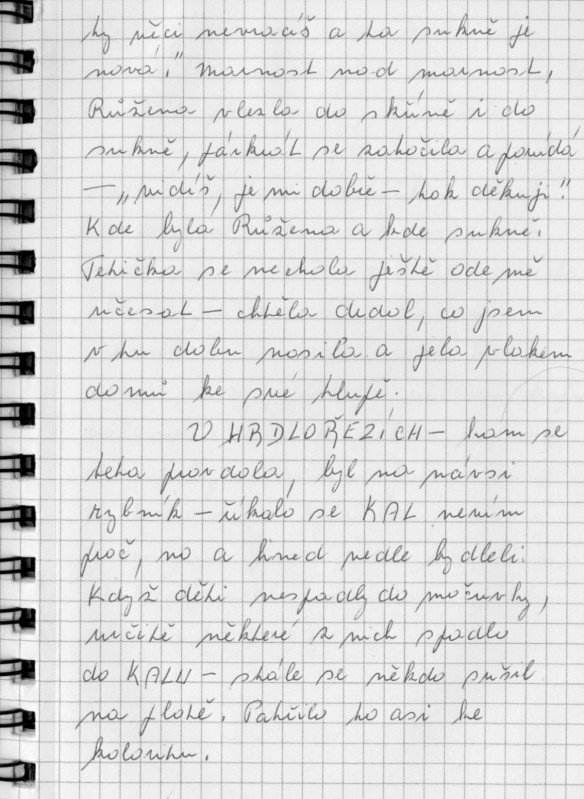 ty věci nevracíš a ta sukně je
nová." Marnost nad marnost,
Růžena vlezla do skříně i do
sukně, párkrát se zatočila a povídá
– „vidíš, je mi dobře – tak děkuji."
Kde byla Růžena a kde sukně.
Tetička se nechala ještě ode mě
učesat – chtěla drdol, co jsem
v tu dobu nosila a jela vlakem
domů ke své tlupě.
V HRDLOŘEZÍCH – kam se
teta provdala, byl na návsi
rybník – říkalo se KAL nevím
proč, no a hned vedle bydleli.
Když děti nespadly do močuvky,
určitě některé z nich spadlo
do KALU – stále se někdo sušil
na plotě. Patřilo to asi ke
koloritu.